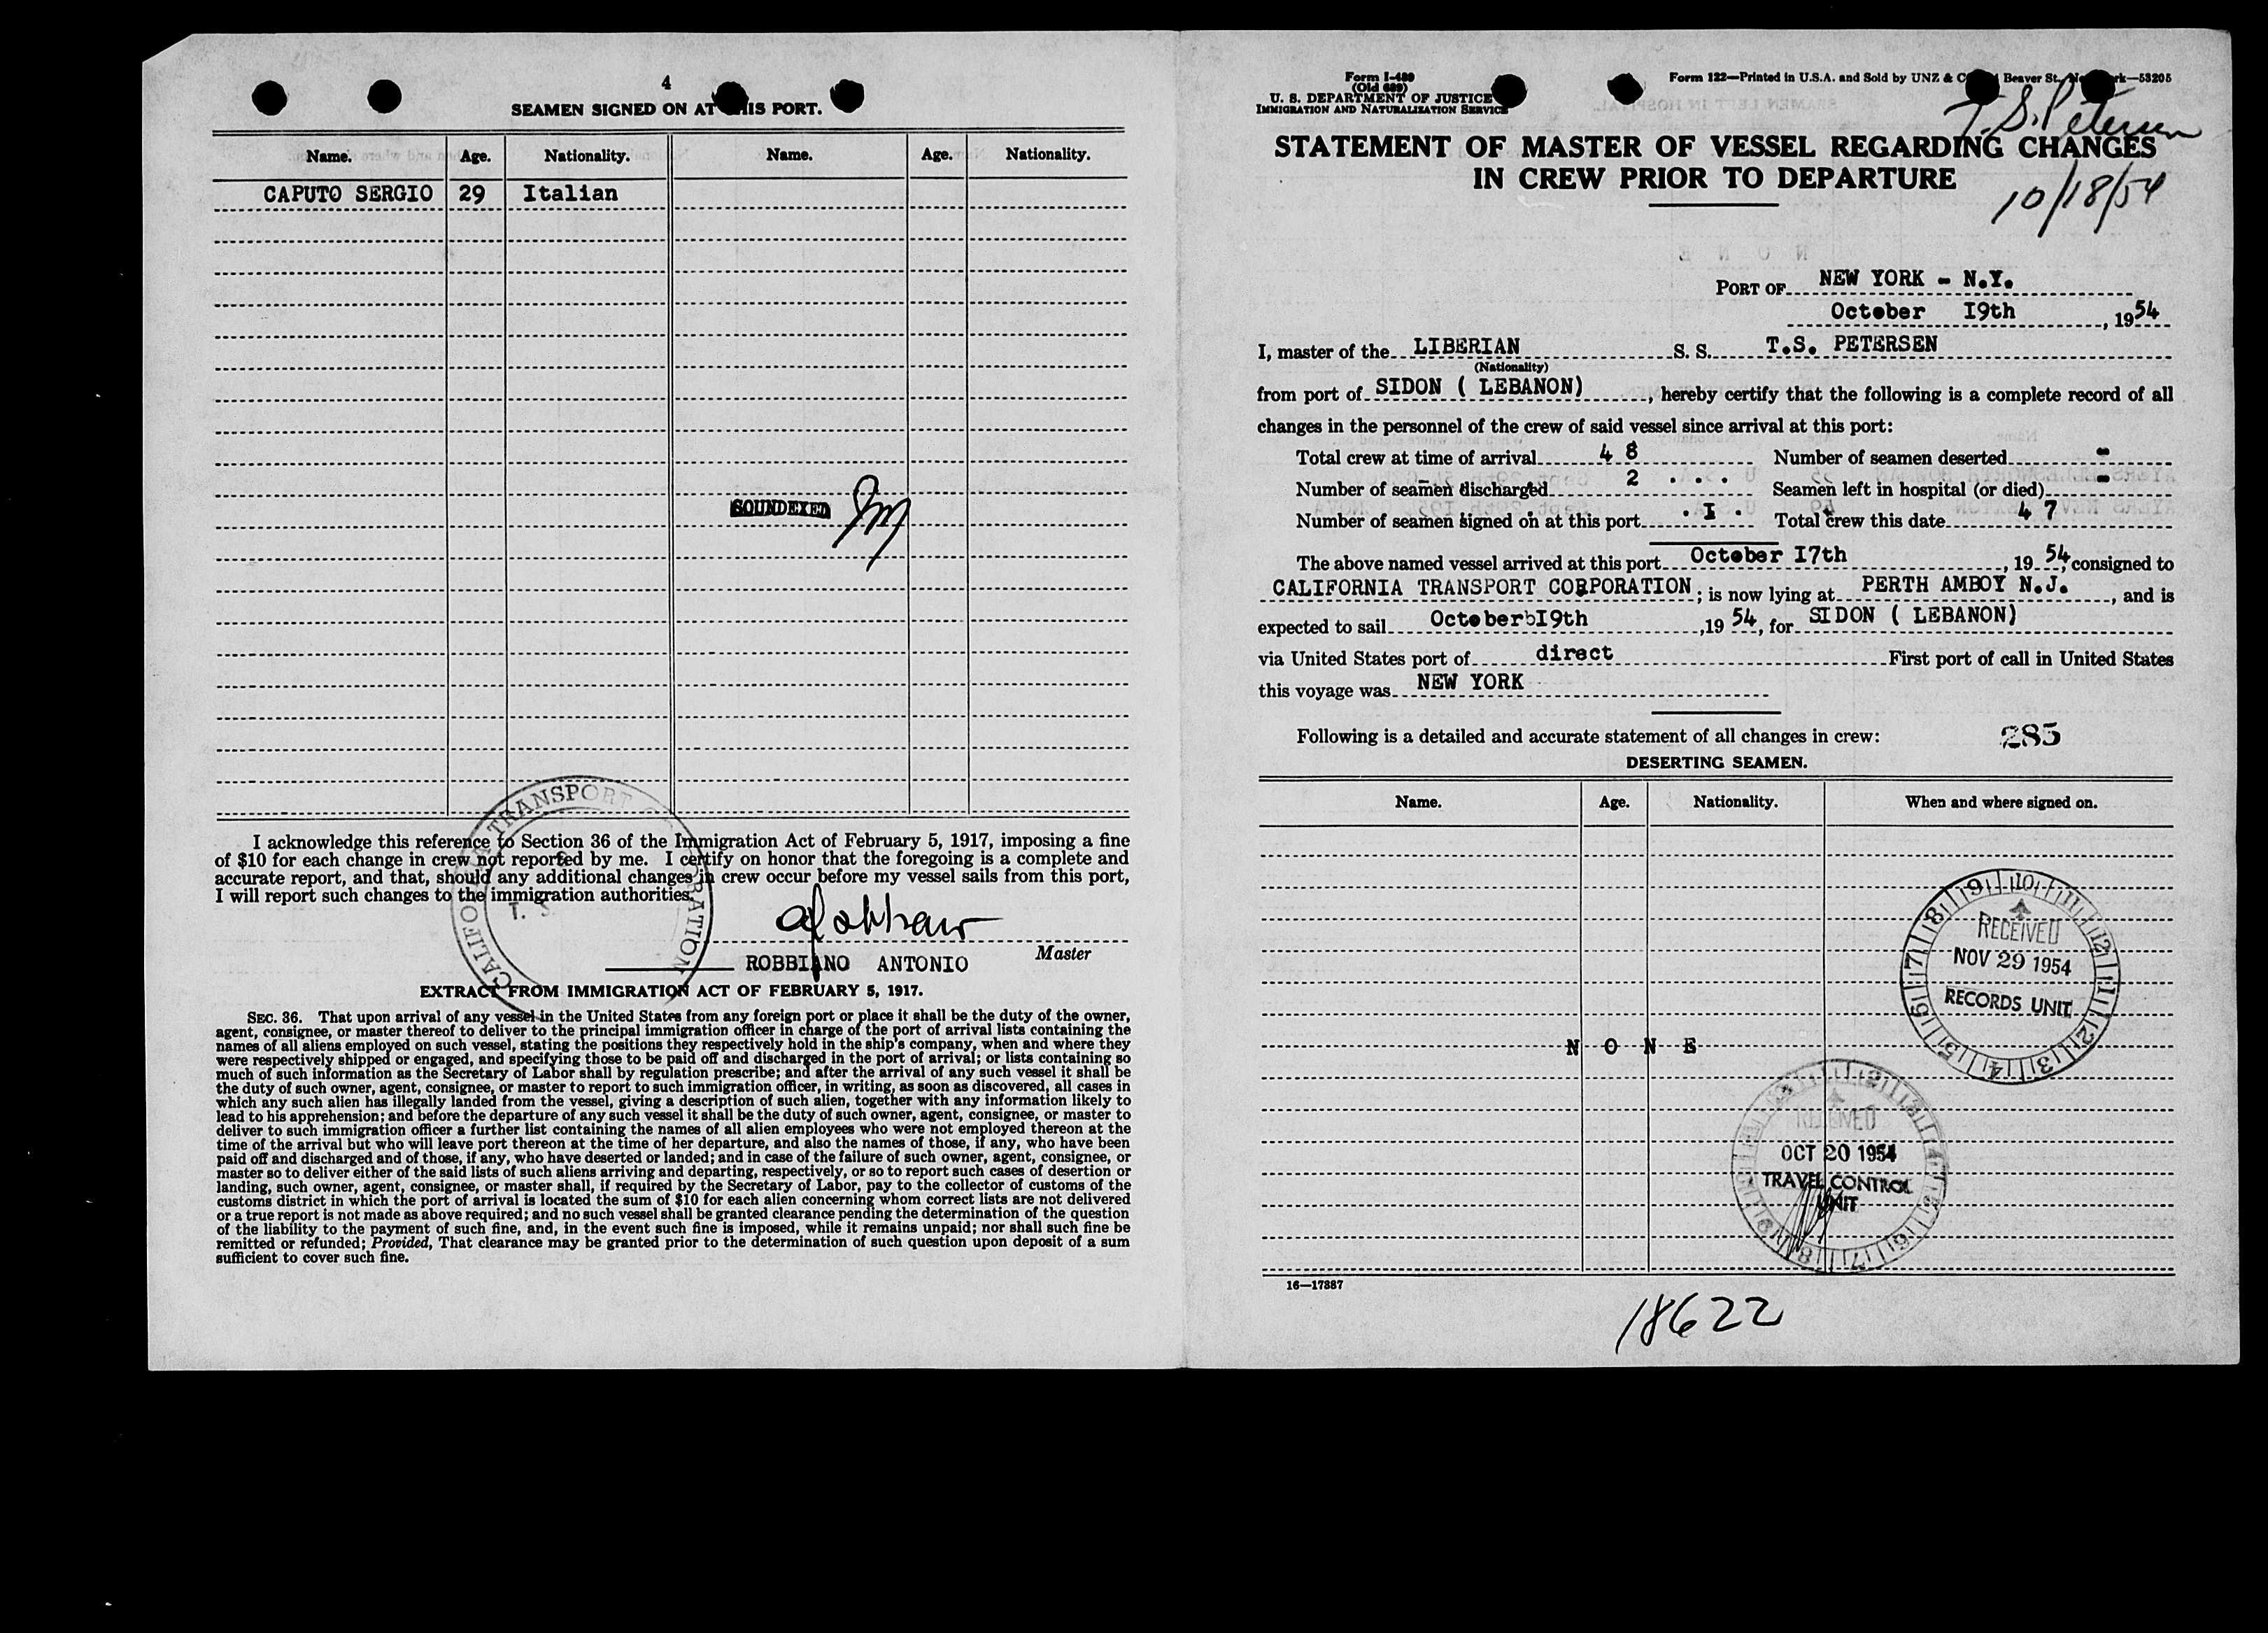 4
SEAMEN SIGNED ON AT THIS PORT.
Name. Age. Nationality. Name. Age. Nationality.
CAPUTO SERGIO 29 Italian
SOUNDEXED
I acknowledge this reference to Section 36 of the Immigration Act of February 5, 1917, imposing a fine
of $10 for each change in crew not reported by me. I certify on honor that the foregoing is a complete and
accurate report, and that, should any additional changes in crew occur before my vessel sails from this port,
I will report such changes to the immigration authorities.
CALIFORNIA TRANSPORT CORPORATION
T. S.
Master
ROBBIANO ANTONIO
EXTRACT FROM IMMIGRATION ACT OF FEBRUARY 5, 1917.
SEC. 36. That upon arrival of any vessel in the United States from any foreign port or place it shall be the duty of the owner,
agent, consignee, or master thereof to deliver to the principal immigration officer in charge of the port of arrival lists containing the
names of all aliens employed on such vessel, stating the positions they respectively hold in the ship's company, when and where they
were respectively shipped or engaged, and specifying those to be paid off and discharged in the port of arrival; or lists containing so
much of such information as the Secretary of Labor shall by regulation prescribe; and after the arrival of any such vessel it shall be
the duty of such owner, agent, consignee, or master to report to such immigration officer, in writing, as soon as discovered, all cases in
which any such alien has illegally landed from the vessel, giving a description of such alien, together with any information likely to
lead to his apprehension; and before the departure of any such vessel it shall be the duty of such owner, agent, consignee, or master to
deliver to such immigration officer a further list containing the names of all alien employees who were not employed thereon at the
time of the arrival but who will leave port thereon at the time of her departure, and also the names of those, if any, who have been
paid off and discharged and of those, if any, who have deserted or landed; and in case of the failure of such owner, agent, consignee, or
master so to deliver either of the said lists of such aliens arriving and departing, respectively, or so to report such cases of desertion or
landing, such owner, agent, consignee, or master shall, if required by the Secretary of Labor, pay to the collector of customs of the
customs district in which the port of arrival is located the sum of $10 for each alien concerning whom correct lists are not delivered
or a true report is not made as above required; and no such vessel shall be granted clearance pending the determination of the question
of the liability to the payment of such fine, and, in the event such fine is imposed, while it remains unpaid; nor shall such fine be
remitted or refunded; Provided, That clearance may be granted prior to the determination of such question upon deposit of a sum
sufficient to cover such fine.
Form I-489
(Old 689)
U. S. DEPARTMENT OF JUSTICE
IMMIGRATION AND NATURALIZATION SERVICE
Form 122—Printed in U.S.A. and Sold by UNZ & Beaver St., —53205
T. S. Petersen
STATEMENT OF MASTER OF VESSEL REGARDING CHANGES
IN CREW PRIOR TO DEPARTURE
10/18/54
PORT OF NEW YORK - N.Y.
October I9th, 1954
I, master of the LIBERIAN S. S. T.S. PETERSEN
(Nationality)
from port of SIDON ( LEBANON), hereby certify that the following is a complete record of all
changes in the personnel of the crew of said vessel since arrival at this port:
Total crew at time of arrival 4 8 Number of seamen deserted -
Number of seamen discharged 2 Seamen left in hospital (or died) -
Number of seamen signed on at this port I Total crew this date 4 7
The above named vessel arrived at this port October I7th, 1954, consigned to
CALIFORNIA TRANSPORT CORPORATION; is now lying at PERTH AMBOY N.J., and is
expected to sail OctoberbI9th, 1954, for SIDON ( LEBANON)
via United States port of direct First port of call in United States
this voyage was NEW YORK
Following is a detailed and accurate statement of all changes in crew: 285
DESERTING SEAMEN.
Name. Age. Nationality. When and where signed on.
RECEIVED
NOV 29 1954
RECORDS UNIT
N O N E
RECEIVED
OCT 20 1954
TRAVEL CONTROL
UNIT
16—17887
18622